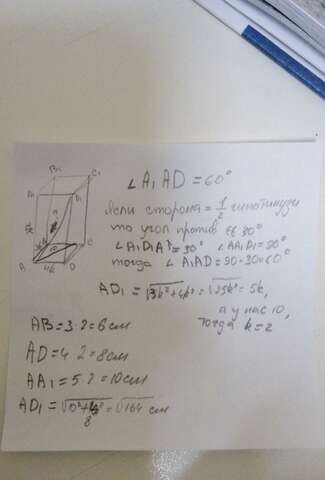 B₁ C₁
A₁ D₁
5k
A 4k D C
∠A₁AD = 60°
Если сторона = 1/2 гипотенузы
то угол против её 30°
∠A₁D₁A = 30° ∠AA₁D₁ = 90°
тогда ∠A₁AD = 90-30=60°
AD₁ = √3k²+4k² = √25k² = 5k,
а у нас 10,
тогда k=2
AB = 3·2 = 6 см
AD = 4·2 = 8 см
AA₁ = 5·2 = 10 см
AD₁ = √10²+8² = √164 см